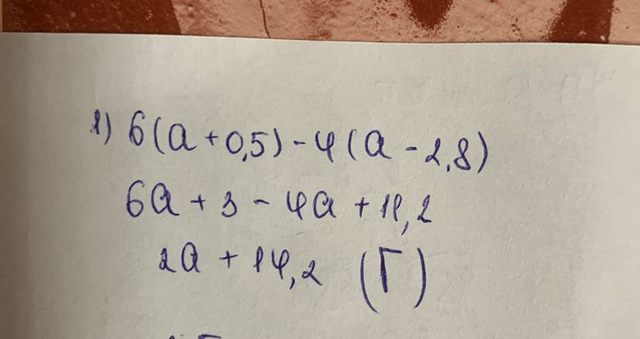 1) 6(a+0,5)-4(a-2,8)
6a+3-4a+11,2
2a+14,2 (Г)